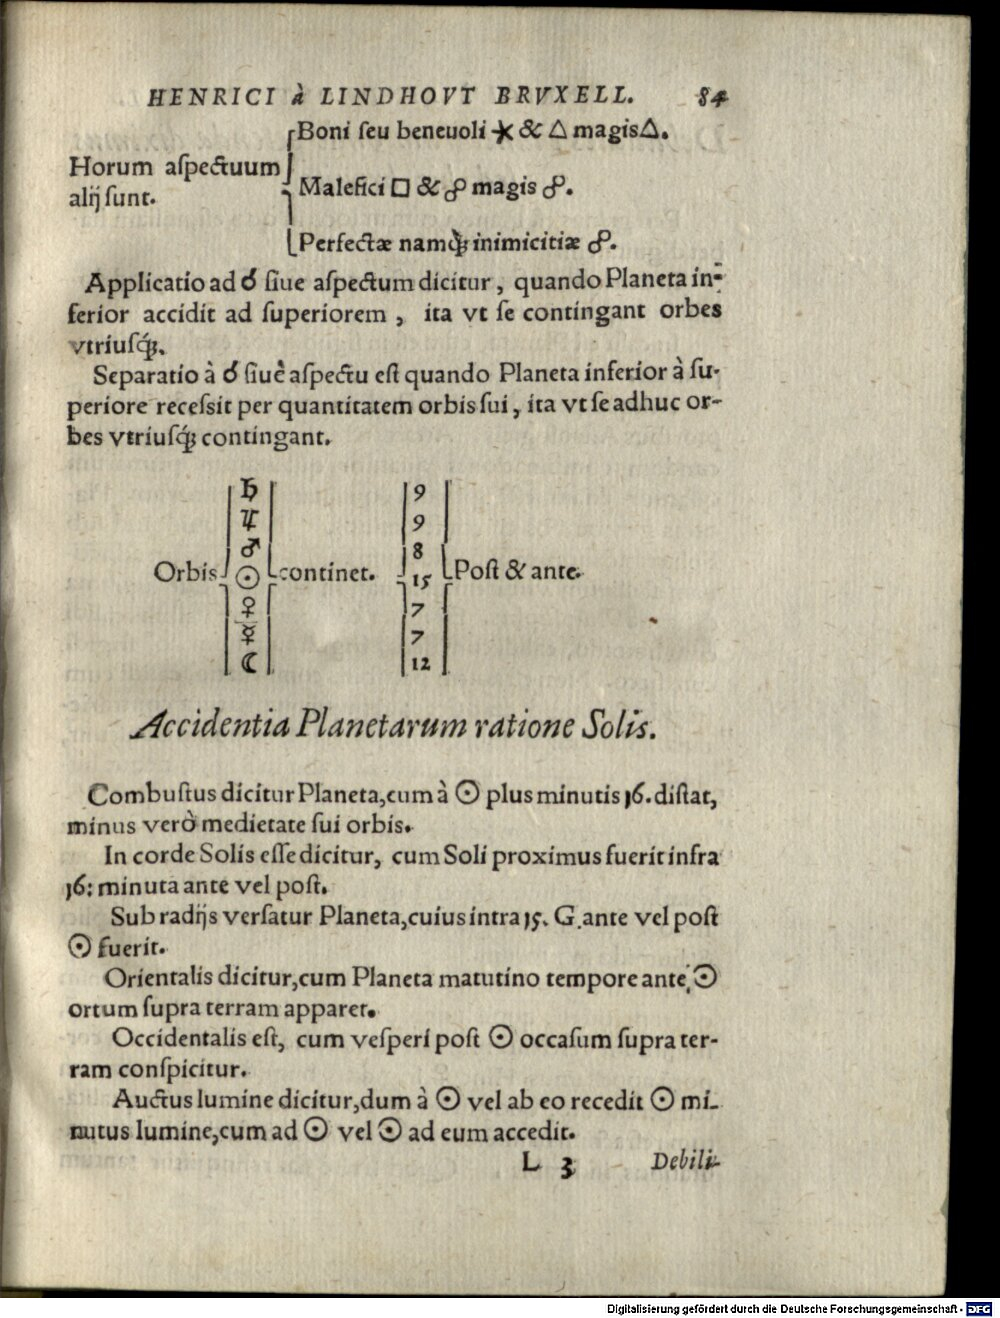 HENRICI à LINDHOVT BRVXELL. 84
Boni ſeu beneuoli ⚹ & △ magis △.
Horum aſpectuum
alij ſunt.
Malefici □ & ☍ magis ☍.
Perfectæ namq́; inimicitiæ ☍.
Applicatio ad ☌ ſiue aſpectum dicitur, quando Planeta in-
ferior accidit ad ſuperiorem, ita vt ſe contingant orbes
vtriuſq́;.
Separatio à ☌ ſiue aſpectu eſt quando Planeta inferior à ſu-
periore receſsit per quantitatem orbis ſui, ita vt ſe adhuc or-
bes vtriuſq́; contingant.
♄ 9
♃ 9
♂ 8
Orbis ☉ continet. 15 Poſt & ante.
♀ 7
☿ 7
☾ 12
Accidentia Planetarum ratione Solis.
Combuſtus dicitur Planeta, cum à ☉ plus minutis 16. diſtat,
minus verò medietate ſui orbis.
In corde Solis eſſe dicitur, cum Soli proximus fuerit infra
16: minuta ante vel poſt.
Sub radijs verſatur Planeta, cuius intra 15. G. ante vel poſt
☉ fuerit.
Orientalis dicitur, cum Planeta matutino tempore ante ☉
ortum ſupra terram apparet.
Occidentalis eſt, cum veſperi poſt ☉ occaſum ſupra ter-
ram conſpicitur.
Auctus lumine dicitur, dum à ☉ vel ab eo recedit ☉ mi-
nutus lumine, cum ad ☉ vel ☉ ad eum accedit.
L 3 Debili-
Digitalisierung gefördert durch die Deutsche Forschungsgemeinschaft - DFG